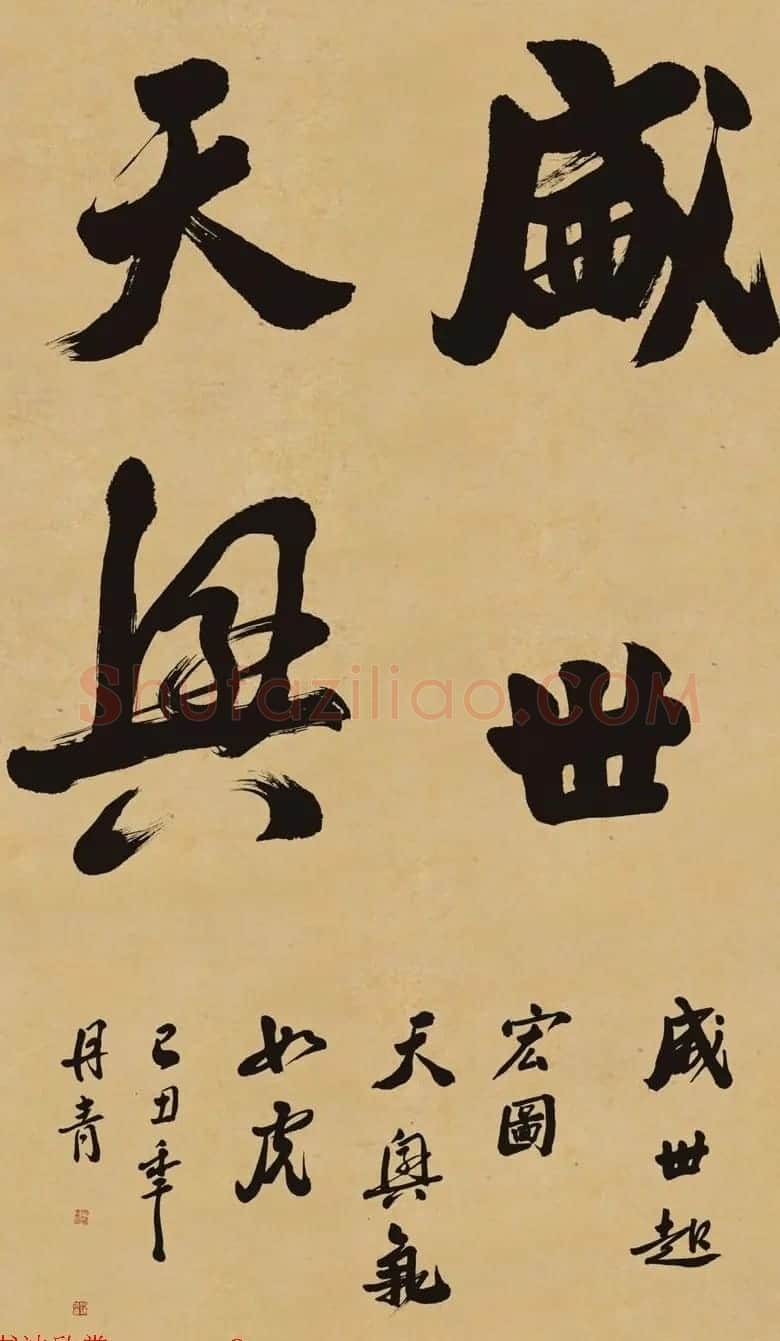 盛世
天興
盛世起
宏圖
天興氣
如虎
己丑年
丹青
Shufaziliao.COM